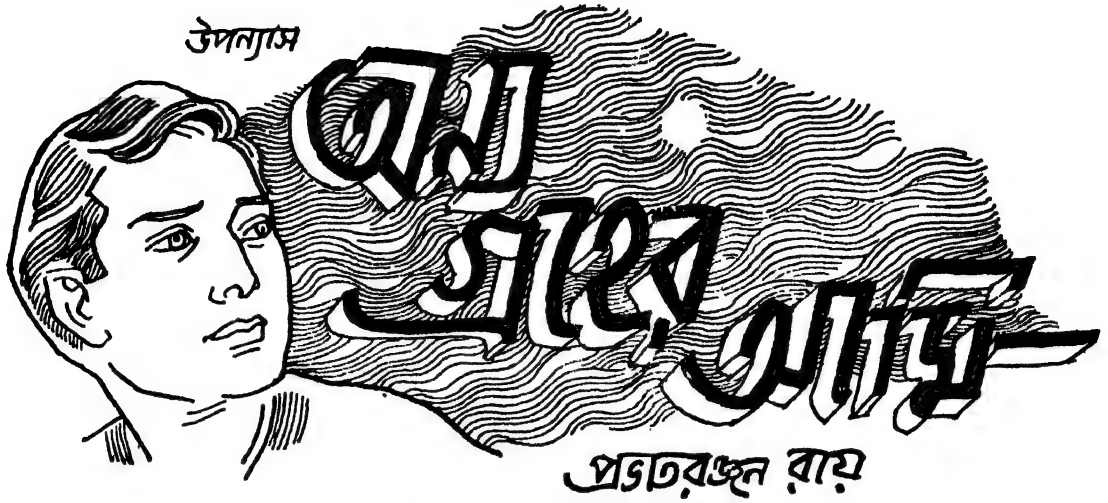 উপন্যাস
অন্য
গ্রহের
আমি
প্রভাতরঞ্জন রায়